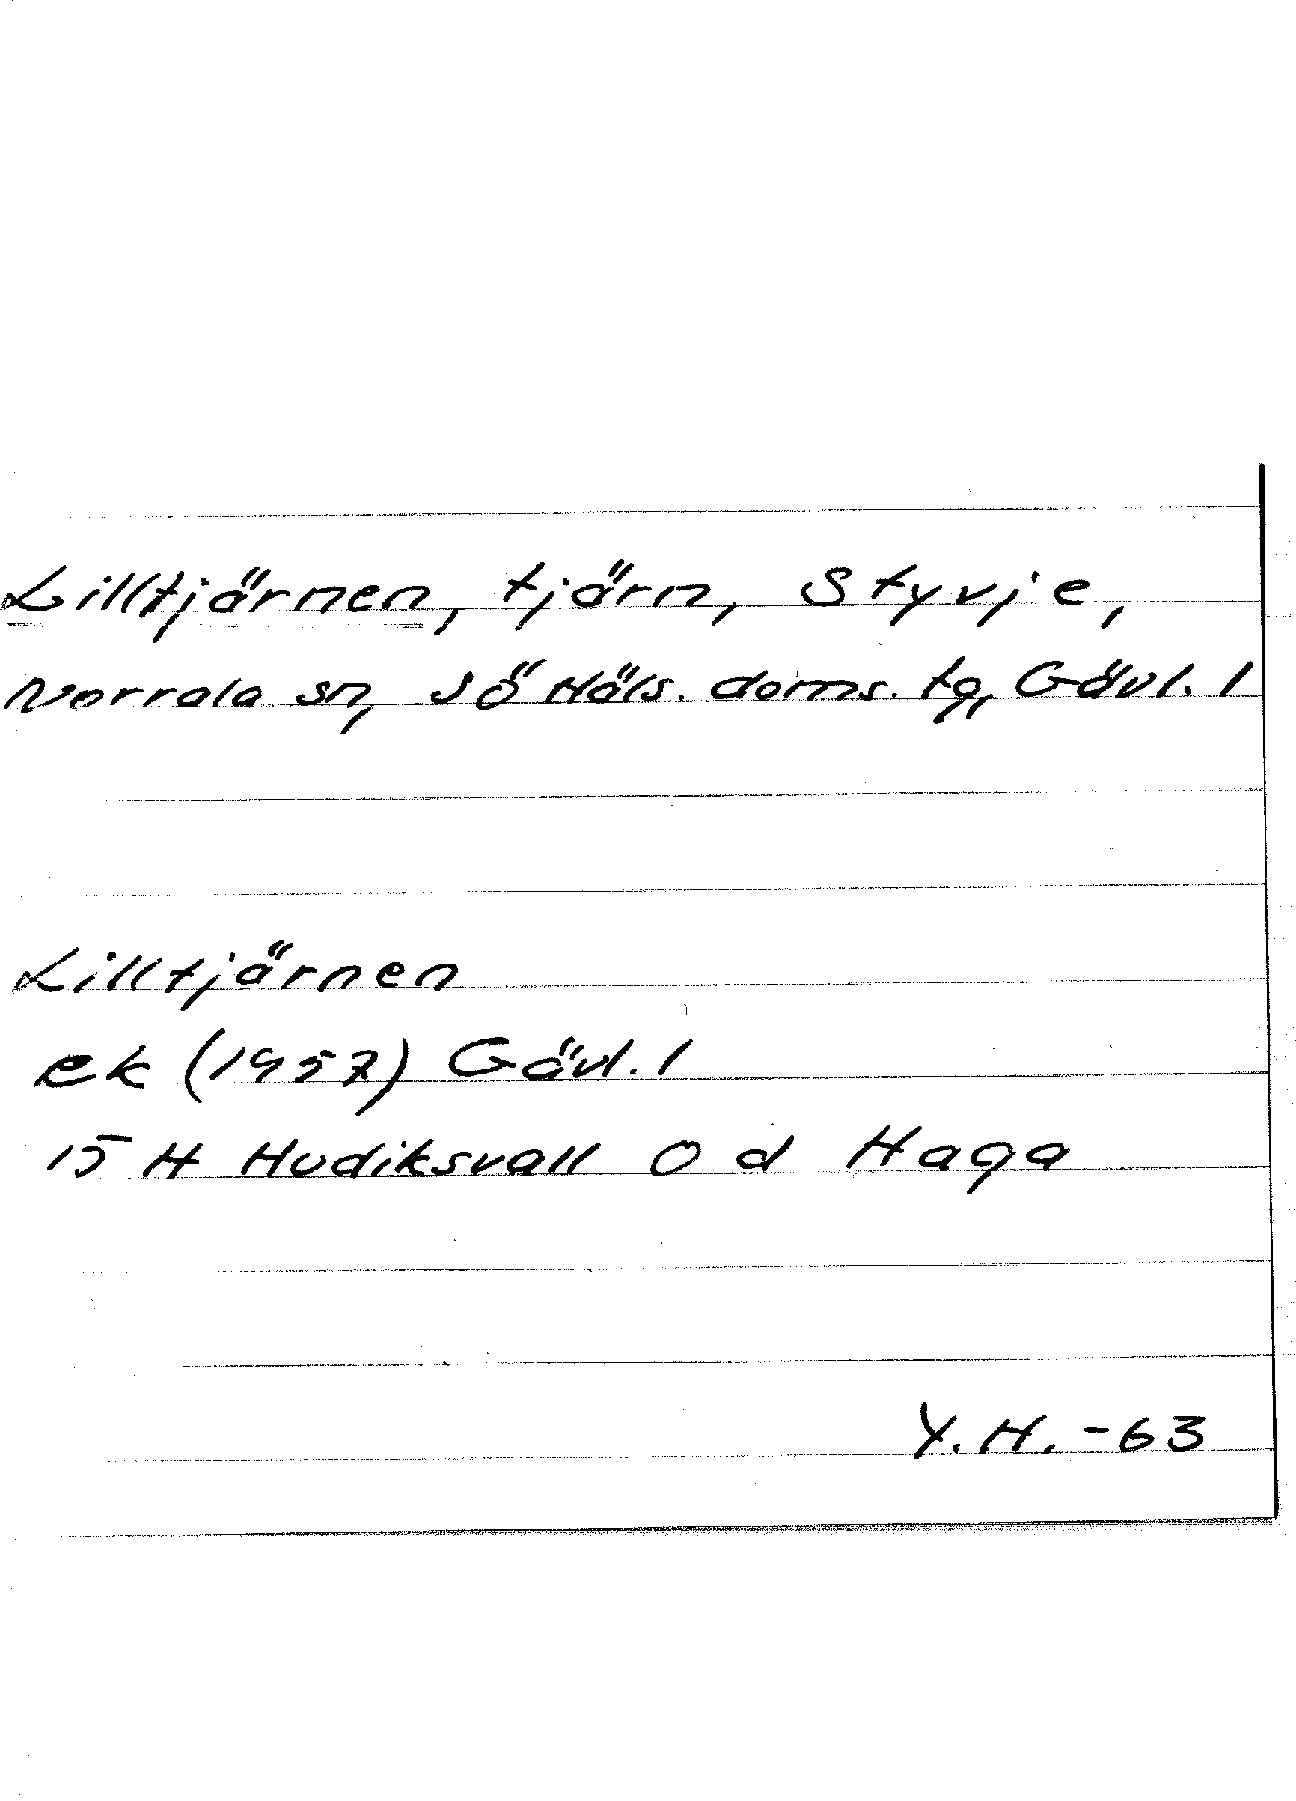 Lilltjärnen, tjärn, Styvje,
Norrala sn, Sö Häls. doms. tg, Gävl. l
Lilltjärnen
ek (1957) Gävl. l
15 H Hudiksvall O d Haga
Y.H. -63